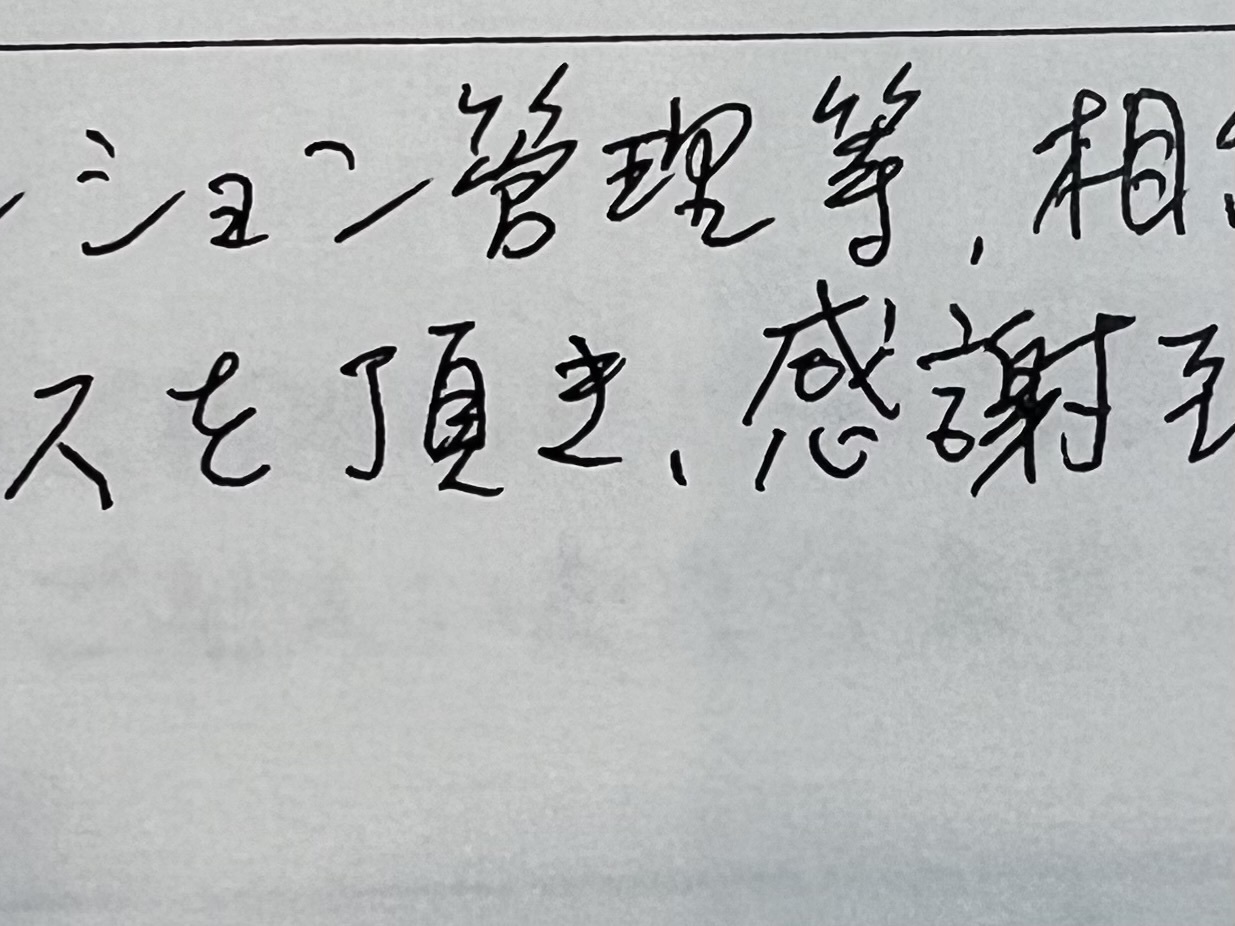 ション管理等、相
スを頂き、感謝至